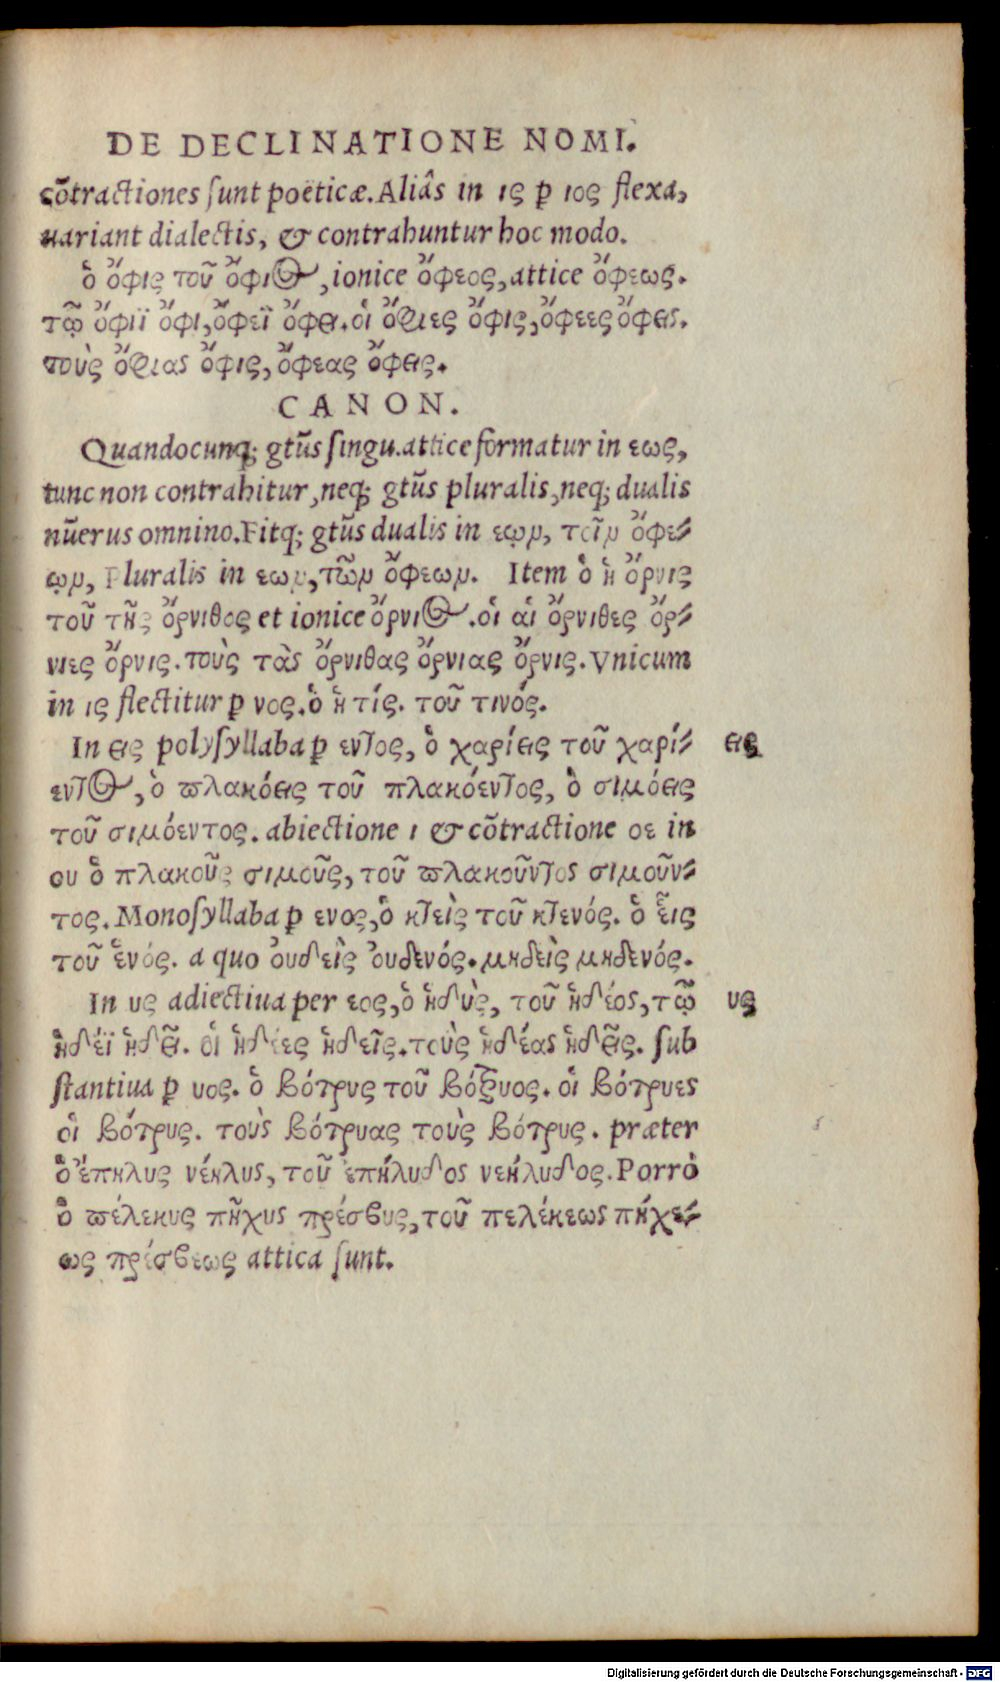 DE DECLINATIONE NOMI.
cōtractiones sunt poëticæ. Aliâs in ις ꝑ ιος flexa,
uariant dialectis, & contrahuntur hoc modo.
ὁ ὄφις τοῦ ὄφιος, ionice ὄφεος, attice ὄφεως.
τῷ ὄφιϊ ὄφι, ὄφεϊ ὄφει. οἱ ὄφιες ὄφις, ὄφεες ὄφεις.
τοὺς ὄφιας ὄφις, ὄφεας ὄφεις.
CANON.
Quandocunq; gtūs singu. attice formatur in εως,
tunc non contrahitur, neq; gtūs pluralis, neq; dualis
nūerus omnino. Fitq; gtūs dualis in εῳν, τοῖν ὄφε-
ῳν, Pluralis in εων, τῶν ὄφεων. Item ὁ ἡ ὄρνις
τοῦ τῆς ὄρνιθος et ionice ὄρνιος. οἱ αἱ ὄρνιθες ὄρ-
νιες ὄρνις. τοὺς τὰς ὄρνιθας ὄρνιας ὄρνις. Vnicum
in ις flectitur ꝑ νος. ὁ ἡ τίς. τοῦ τινός.
In εις polysyllaba ꝑ εντος, ὁ χαρίεις τοῦ χαρί- εις
εντος, ὁ πλακόεις τοῦ πλακόεντος, ὁ σιμόεις
τοῦ σιμόεντος. abiectione ι & cōtractione οε in
ου ὁ πλακοῦς σιμοῦς, τοῦ πλακοῦντος σιμοῦν-
τος. Monosyllaba ꝑ ενος, ὁ κτεὶς τοῦ κτενός. ὁ εἷς
τοῦ ἑνός. a quo ὀυδεὶς ὀυδενός. μηδεὶς μηδενός.
In υς adiectiua per εος, ὁ ἡδὺς, τοῦ ἡδέος, τῷ υς
ἡδέϊ ἡδεῖ. οἱ ἡδέες ἡδεῖς. τοὺς ἡδέας ἡδεῖς. sub
stantiua ꝑ υος. ὁ βότρυς τοῦ βότρυος. οἱ βότρυες
οἱ βότρυς. τοὺς βότρυας τοὺς βότρυς. præter
ὁ ἔπηλυς νέηλυς, τοῦ ἐπήλυδος νεήλυδος. Porrò
ὁ πέλεκυς πῆχυς πρέσβυς, τοῦ πελέκεως πήχε-
ως πρέσβεως attica sunt.
Digitalisierung gefördert durch die Deutsche Forschungsgemeinschaft - DFG